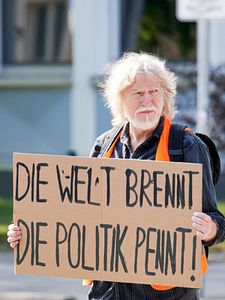 DIE WELT BRENNT
DIE POLITIK PENNT!